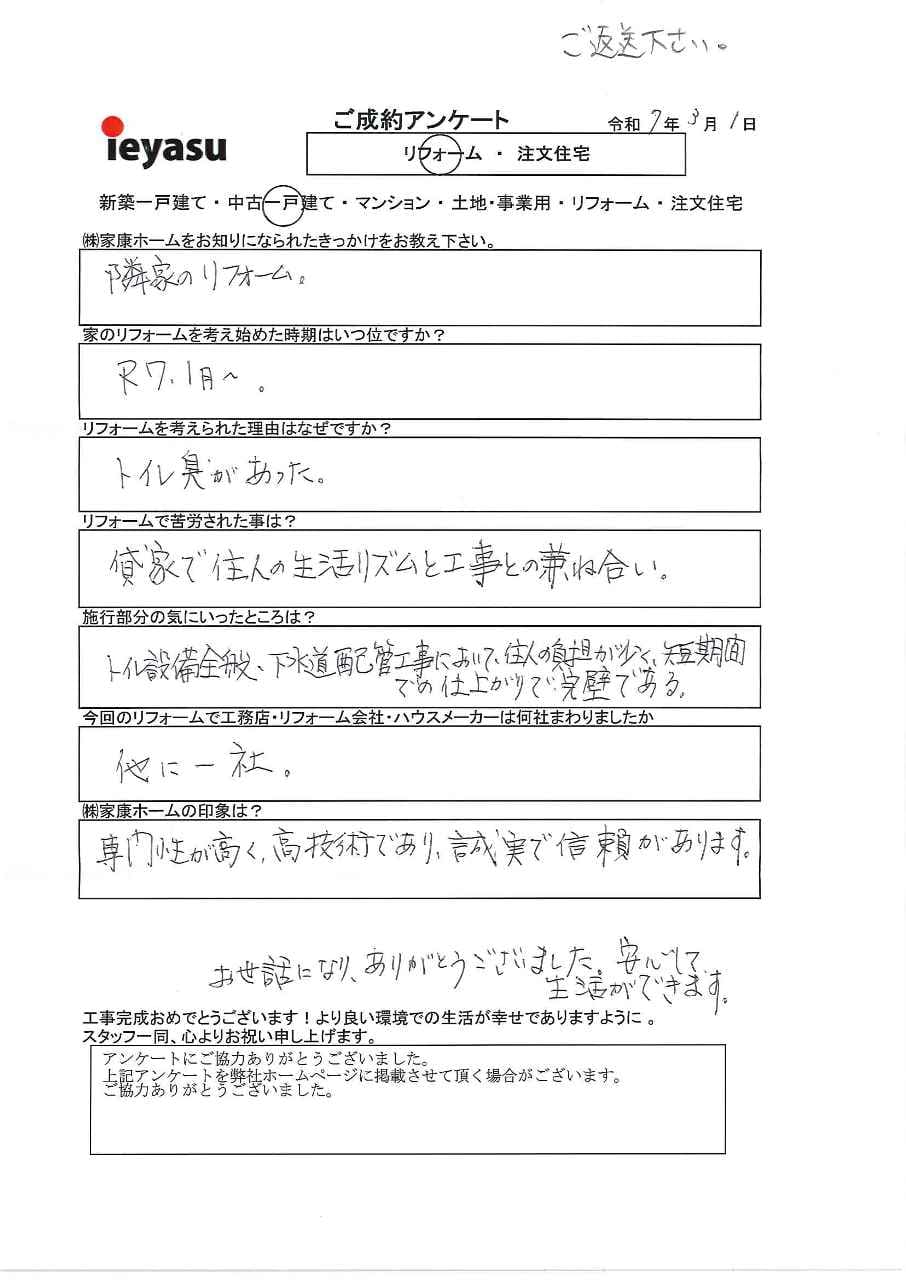 ご返送下さい。
ieyasu
ご成約アンケート
令和 7年 3月 1日
リフォーム ・ 注文住宅
新築一戸建て・中古一戸建て・マンション・土地・事業用・リフォーム・注文住宅
㈱家康ホームをお知りになられたきっかけをお教え下さい。
隣家のリフォーム。
家のリフォームを考え始めた時期はいつ位ですか？
R7.1月〜。
リフォームを考えられた理由はなぜですか？
トイレ臭があった。
リフォームで苦労された事は？
貸家で住人の生活リズムと工事との兼ね合い。
施行部分の気にいったところは？
トイレ設備全般、下水道配管工事において、住人の負担が少く、短期間
での仕上がりで完璧である。
今回のリフォームで工務店・リフォーム会社・ハウスメーカーは何社まわりましたか
他に一社。
㈱家康ホームの印象は？
専門性が高く、高技術であり、誠実で信頼があります。
お世話になり、ありがとうございました。安心して
生活ができます。
工事完成おめでとうございます！より良い環境での生活が幸せでありますように 。
スタッフ一同、心よりお祝い申し上げます。
アンケートにご協力ありがとうございました。
上記アンケートを弊社ホームページに掲載させて頂く場合がございます。
ご協力ありがとうございました。